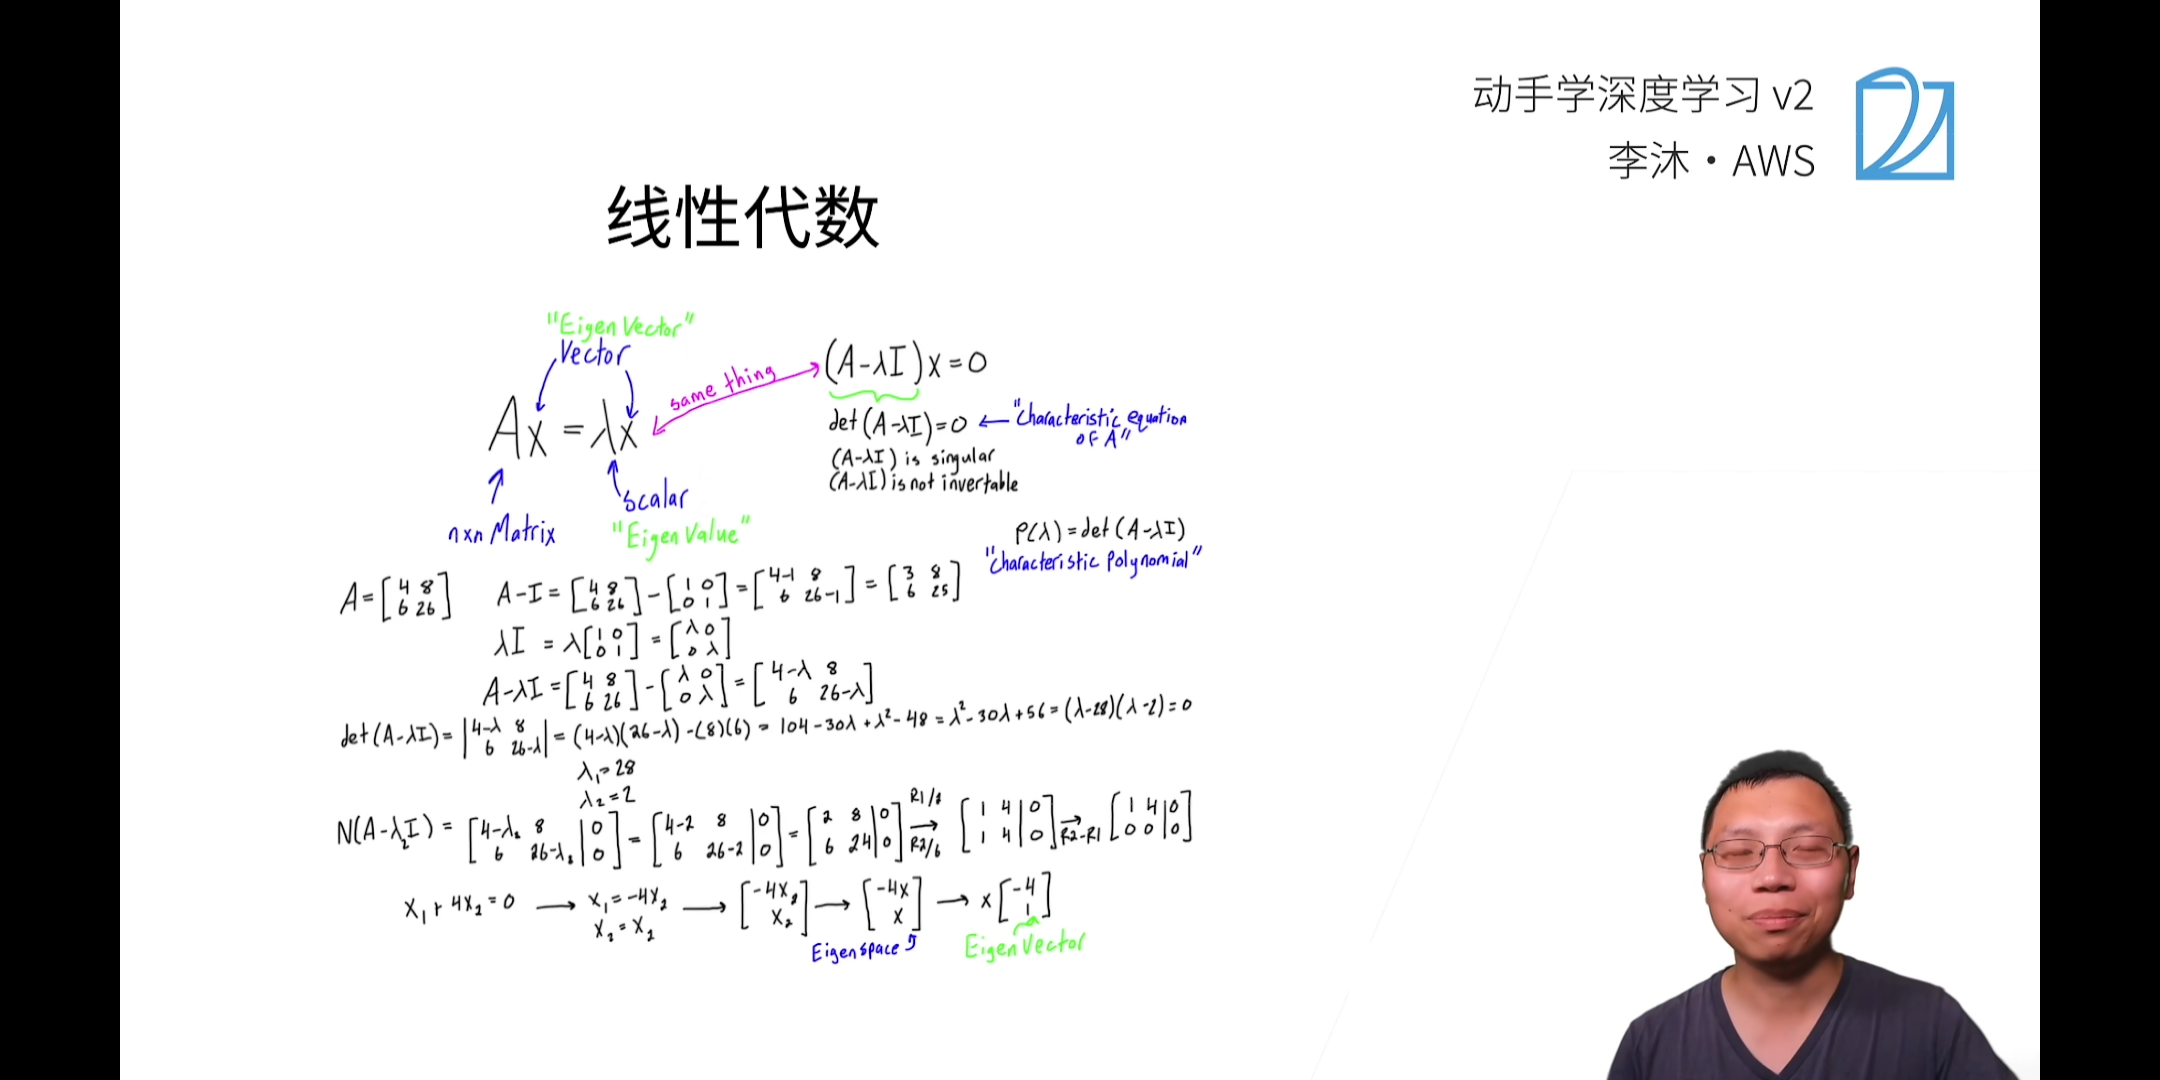 动手学深度学习 v2
李沐・AWS
线性代数
"Eigen Vector"
Vector
Ax = λx
same thing
(A-λI)x=0
det(A-λI)=0 ← "Characteristic equation
OF A"
(A-λI) is singular
(A-λI) is not invertable
nxn Matrix
Scalar
"Eigen Value"
P(λ)=det(A-λI)
"Characteristic Polynomial"
A=[4 8; 6 26] A-I=[4 8; 6 26]-[1 0; 0 1]=[4-1 8; 6 26-1]=[3 8; 6 25]
λI = λ[1 0; 0 1] = [λ 0; 0 λ]
A-λI=[4 8; 6 26]-[λ 0; 0 λ]=[4-λ 8; 6 26-λ]
det(A-λI)=|4-λ 8; 6 26-λ|=(4-λ)(26-λ)-(8)(6)=104-30λ+λ²-48=λ²-30λ+56=(λ-28)(λ-2)=0
λ₁=28
λ₂=2
N(A-λ₂I)=[4-λ₂ 8|0; 6 26-λ₂|0]=[4-2 8|0; 6 26-2|0]=[2 8|0; 6 24|0] R1/2 → R2/6 [1 4|0; 1 4|0] → R2-R1 [1 4|0; 0 0|0]
x₁+4x₂=0 → x₁=-4x₂ x₂=x₂ → [-4x₂; x₂] → [-4x; x] → x[-4; 1]
Eigenspace
Eigen Vector